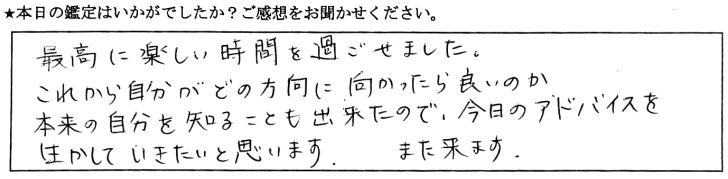 ★本日の鑑定はいかがでしたか？ご感想をお聞かせください。
最高に楽しい時間を過ごせました。
これから自分がどの方向に向かったら良いのか
本来の自分を知ることも出来たので、今日のアドバイスを
生かしていきたいと思います. また来ます.